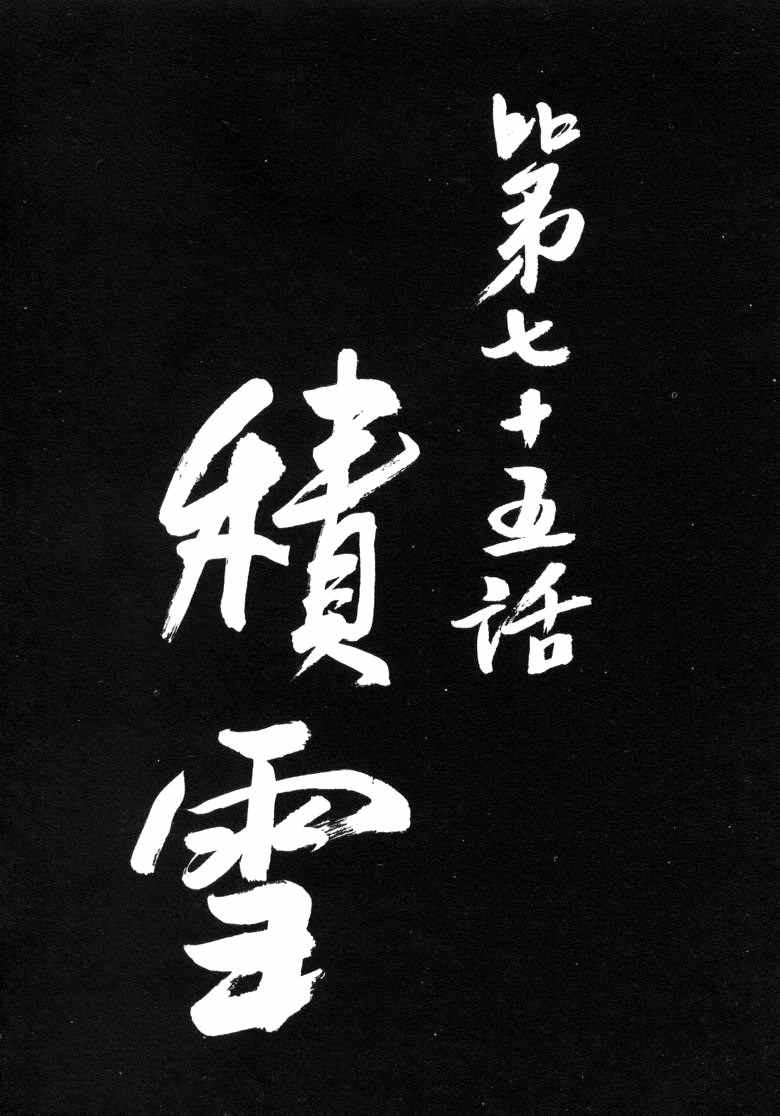 第七十五話
積雪